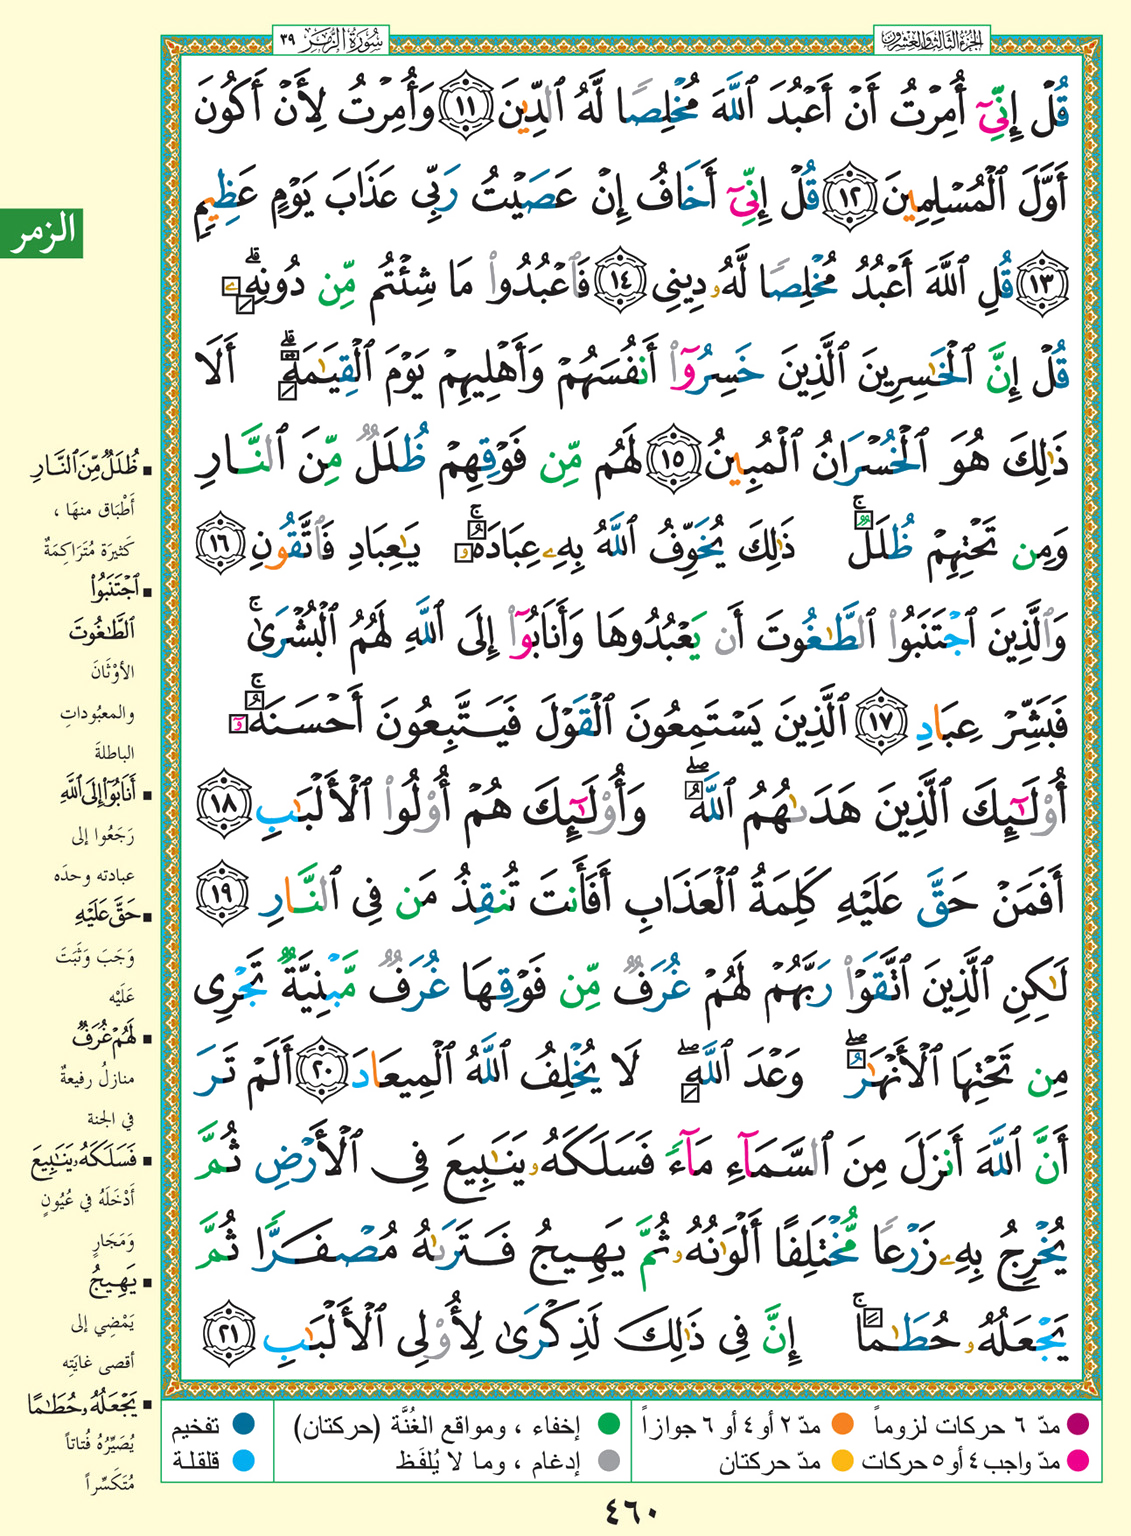 سُورَةُ الزُّمَر ٣٩
الجزء الثالث والعشرون
قُلْ إِنِّىٓ أُمِرْتُ أَنْ أَعْبُدَ ٱللَّهَ مُخْلِصًا لَّهُ ٱلدِّينَ ١١ وَأُمِرْتُ لِأَنْ أَكُونَ
أَوَّلَ ٱلْمُسْلِمِينَ ١٢ قُلْ إِنِّىٓ أَخَافُ إِنْ عَصَيْتُ رَبِّى عَذَابَ يَوْمٍ عَظِيمٍ
١٣ قُلِ ٱللَّهَ أَعْبُدُ مُخْلِصًا لَّهُۥ دِينِى ١٤ فَٱعْبُدُوا۟ مَا شِئْتُم مِّن دُونِهِۦ ۗ
قُلْ إِنَّ ٱلْخَـٰسِرِينَ ٱلَّذِينَ خَسِرُوٓا۟ أَنفُسَهُمْ وَأَهْلِيهِمْ يَوْمَ ٱلْقِيَـٰمَةِ ۗ أَلَا
ذَٰلِكَ هُوَ ٱلْخُسْرَانُ ٱلْمُبِينُ ١٥ لَهُم مِّن فَوْقِهِمْ ظُلَلٌ مِّنَ ٱلنَّارِ
وَمِن تَحْتِهِمْ ظُلَلٌ ۚ ذَٰلِكَ يُخَوِّفُ ٱللَّهُ بِهِۦ عِبَادَهُۥ ۚ يَـٰعِبَادِ فَٱتَّقُونِ ١٦
وَٱلَّذِينَ ٱجْتَنَبُوا۟ ٱلطَّـٰغُوتَ أَن يَعْبُدُوهَا وَأَنَابُوٓا۟ إِلَى ٱللَّهِ لَهُمُ ٱلْبُشْرَىٰ ۚ
فَبَشِّرْ عِبَادِ ١٧ ٱلَّذِينَ يَسْتَمِعُونَ ٱلْقَوْلَ فَيَتَّبِعُونَ أَحْسَنَهُۥٓ ۚ
أُو۟لَـٰٓئِكَ ٱلَّذِينَ هَدَىٰهُمُ ٱللَّهُ ۖ وَأُو۟لَـٰٓئِكَ هُمْ أُو۟لُوا۟ ٱلْأَلْبَـٰبِ ١٨
أَفَمَنْ حَقَّ عَلَيْهِ كَلِمَةُ ٱلْعَذَابِ أَفَأَنتَ تُنقِذُ مَن فِى ٱلنَّارِ ١٩
لَـٰكِنِ ٱلَّذِينَ ٱتَّقَوْا۟ رَبَّهُمْ لَهُمْ غُرَفٌ مِّن فَوْقِهَا غُرَفٌ مَّبْنِيَّةٌ تَجْرِى
مِن تَحْتِهَا ٱلْأَنْهَـٰرُ ۖ وَعْدَ ٱللَّهِ ۖ لَا يُخْلِفُ ٱللَّهُ ٱلْمِيعَادَ ٢٠ أَلَمْ تَرَ
أَنَّ ٱللَّهَ أَنزَلَ مِنَ ٱلسَّمَآءِ مَآءً فَسَلَكَهُۥ يَنَـٰبِيعَ فِى ٱلْأَرْضِ ثُمَّ
يُخْرِجُ بِهِۦ زَرْعًا مُّخْتَلِفًا أَلْوَٰنُهُۥ ثُمَّ يَهِيجُ فَتَرَىٰهُ مُصْفَرًّا ثُمَّ
يَجْعَلُهُۥ حُطَـٰمًا ۚ إِنَّ فِى ذَٰلِكَ لَذِكْرَىٰ لِأُو۟لِى ٱلْأَلْبَـٰبِ ٢١
الزمر
ظُلَلٌ مِّنَ ٱلنَّارِ
أَطْبَاق منهَا ،
كَثيرَة مُتَرَاكِمَةٌ
ٱجْتَنَبُوا۟
ٱلطَّـٰغُوتَ
الأوْثَانَ
والمعبُوداتِ
الباطلةَ
أَنَابُوٓا۟ إِلَى ٱللَّهِ
رَجَعُوا إلى
عبادته وحدَه
حَقَّ عَلَيْهِ
وَجَبَ وَثَبَتَ
عَلَيْه
لَهُمْ غُرَفٌ
منازلُ رفيعةٌ
في الجنة
فَسَلَكَهُۥ يَنَـٰبِيعَ
أدْخَلَهُ في عُيُونٍ
وَمَجَارٍ
يَهِيجُ
يَمْضِي إلى
أقصى غايَتِه
يَجْعَلُهُۥ حُطَـٰمًا
يُصَيِّرُهُ فُتاتاً
مُتَكَسِّراً
مدّ ٦ حركات لزوماً
مدّ ٢ أو ٤ أو ٦ جوازاً
إخفاء ، ومواقع الغُنَّة (حركتان)
تفخيم
مدّ واجب ٤ أو ٥ حركات
مدّ حركتان
إدغام ، وما لا يُلفَظ
قلقلة
٤٦٠